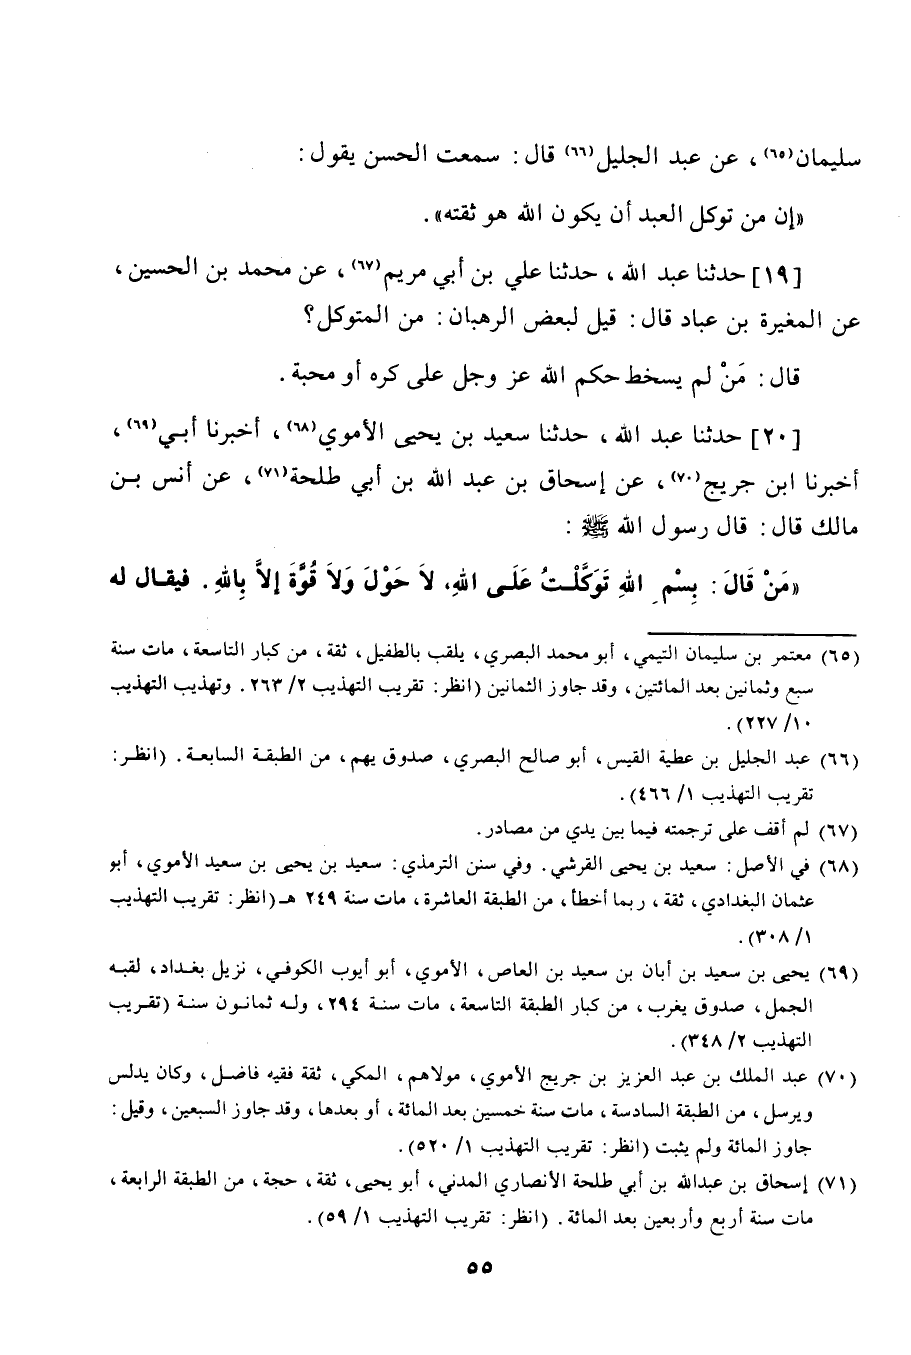 سليمان(٦٥)، عن عبد الجليل(٦٦) قال: سمعت الحسن يقول:
«إن من توكل العبد أن يكون الله هو ثقته».
[١٩] حدثنا عبد الله، حدثنا علي بن أبي مريم(٦٧)، عن محمد بن الحسين،
عن المغيرة بن عباد قال: قيل لبعض الرهبان: من المتوكل؟
قال: مَنْ لم يسخط حكم الله عز وجل على كره أو محبة.
[٢٠] حدثنا عبد الله، حدثنا سعيد بن يحيى الأموي(٦٨)، أخبرنا أبي(٦٩)،
أخبرنا ابن جريج(٧٠)، عن إسحاق بن عبد الله بن أبي طلحة(٧١)، عن أنس بن
مالك قال: قال رسول الله ﷺ:
«مَنْ قَالَ: بِسْمِ اللهِ تَوَكَّلْتُ عَلَى اللهِ، لاَ حَوْلَ وَلاَ قُوَّةَ إلاَّ بِاللهِ. فيقال له
(٦٥) معتمر بن سليمان التيمي، أبو محمد البصري، يلقب بالطفيل، ثقة، من كبار التاسعة، مات سنة
سبع وثمانين بعد المائتين، وقد جاوز الثمانين (انظر: تقريب التهذيب ٢/ ٢٦٣. وتهذيب التهذيب
١٠/ ٢٢٧).
(٦٦) عبد الجليل بن عطية القيس، أبو صالح البصري، صدوق يهم، من الطبقة السابعة. (انظر:
تقريب التهذيب ١/ ٤٦٦).
(٦٧) لم أقف على ترجمته فيما بين يدي من مصادر.
(٦٨) في الأصل: سعيد بن يحيى القرشي. وفي سنن الترمذي: سعيد بن يحيى بن سعيد الأموي، أبو
عثمان البغدادي، ثقة، ربما أخطأ، من الطبقة العاشرة، مات سنة ٢٤٩ هـ (انظر: تقريب التهذيب
١/ ٣٠٨).
(٦٩) يحيى بن سعيد بن أبان بن سعيد بن العاص، الأموي، أبو أيوب الكوفي، نزيل بغداد، لقبه
الجمل، صدوق يغرب، من كبار الطبقة التاسعة، مات سنة ٢٩٤، وله ثمانون سنة (تقريب
التهذيب ٢/ ٣٤٨).
(٧٠) عبد الملك بن عبد العزيز بن جريج الأموي، مولاهم، المكي، ثقة فقيه فاضل، وكان يدلس
ويرسل، من الطبقة السادسة، مات سنة خمسين بعد المائة، أو بعدها، وقد جاوز السبعين، وقيل:
جاوز المائة ولم يثبت (انظر: تقريب التهذيب ١/ ٥٢٠).
(٧١) إسحاق بن عبدالله بن أبي طلحة الأنصاري المدني، أبو يحيى، ثقة، حجة، من الطبقة الرابعة،
مات سنة أربع وأربعين بعد المائة. (انظر: تقريب التهذيب ١/ ٥٩).
٥٥